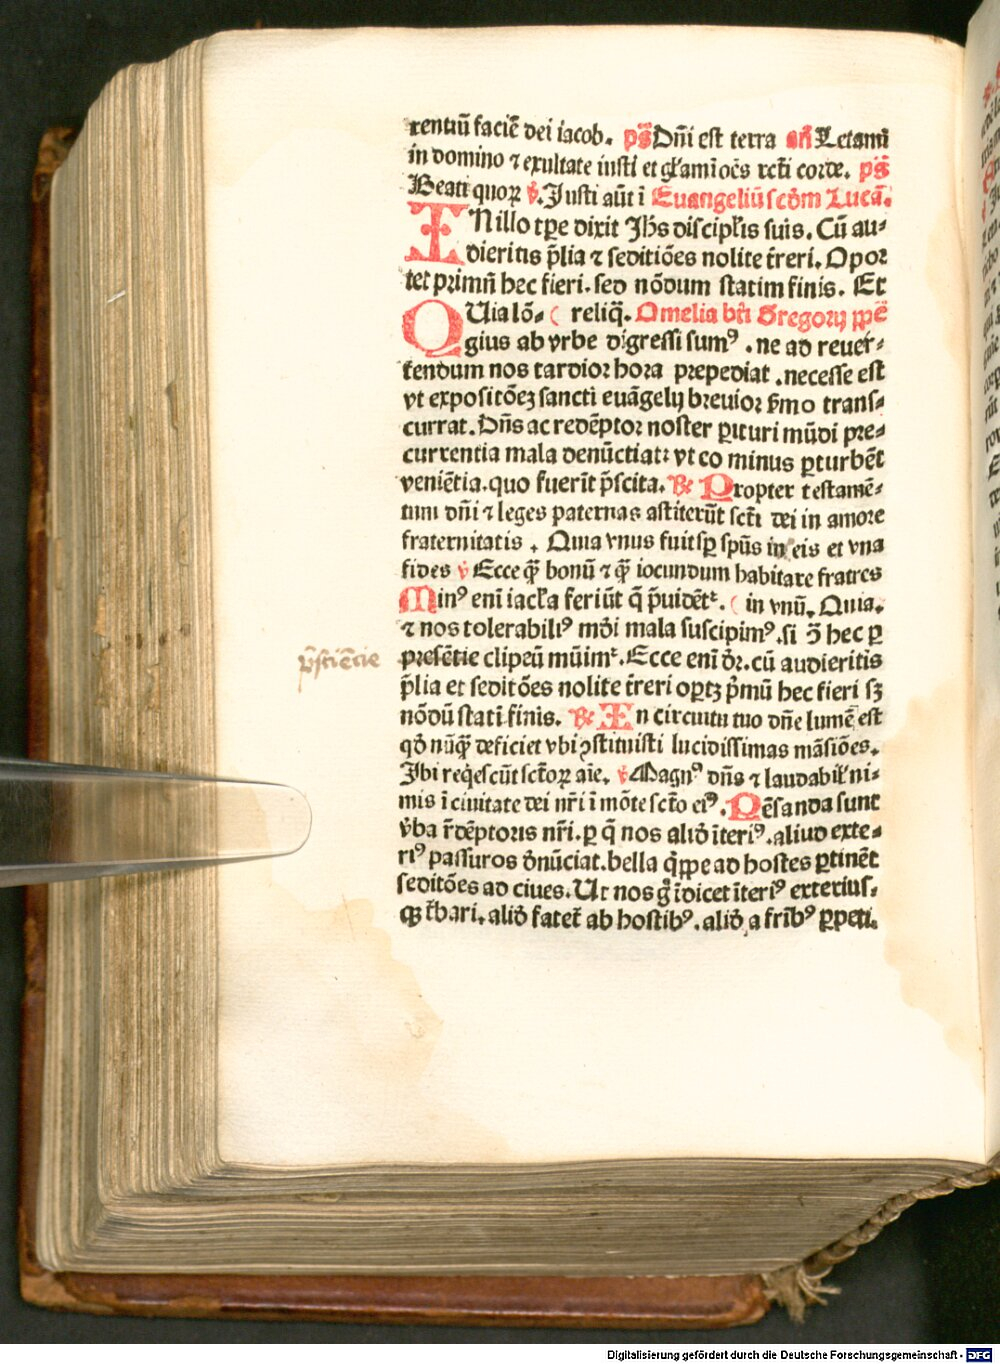 rentiū faciē dei iacob. ps̄ Dn̄i est terra an̄ Letami
in domino ⁊ exultate iusti et gl̄amī oēs rc̄ti corde. ps̄
Beati quoꝝ v̄. Justi aūt ī Euangeliū scd̄m Lucā.
IN illo tp̄e dixit Jh̄s discipl̄is suis. Cū au⸗
dieritis p̄lia ⁊ seditiões nolite t̄reri. Opor
tet primū hec fieri. sed nōdum statim finis. Et
QUia lō⸗ ( reliq̄. Omelia bt̄i Gregorij pp̄e
gius ab vrbe digressi sumꝰ. ne ad reuer⸗
tendum nos tardior hora prepediat. necesse est
vt expositōeꝫ sancti euāgelij breuior s̄mo trans⸗
currat. Dn̄s ac redēptor noster ꝑituri mūdi pre⸗
currentia mala denūctiat: vt eo minus ꝑturbēt
veniētia. quo fuerīt p̄scita. ℟ Propter testamē⸗
tum dn̄i ⁊ leges paternas astiterūt sc̄ti dei in amore
fraternitatis. Quia vnus fuit sꝑ spūs in eis et vna
fides v̄ Ecce q̄ bonū ⁊ q̄ iocundum habitare fratres
Minꝰ eni iacl̄a feriūt q̄ p̄uidēt᷑. ( in vnū. Quia.
⁊ nos tolerabiliꝰ mōi mala suscipimꝰ. si ꝯ̄ hec ꝑ
p̄sciētie
presētie clipeū mūim᷑. Ecce eni d̄r. cū audieritis
p̄lia et seditōes nolite t̄reri oportꝫ p̄mū hec fieri sꝫ
nōdū stati finis. ℟ In circuitu tuo dn̄e lumē est
qd̄ nūq̄ deficiet vbi ꝯstituisti lucidissimas māsiōes.
Jbi reqescūt sc̄toꝝ aīe. v̄ Magnꝰ dn̄s ⁊ laudabil̄ ni⸗
mis ī ciuitate dei nr̄i ī mōte sc̄to eiꝰ. Pēsanda sunt
v̄ba r̄dēptoris nr̄i. ꝑ q̄ nos aliō īteriꝰ. aliud exte⸗
riꝰ passuros d̄nūciat. bella q̄ppe ad hostes ꝑtinēt
seditōes ad ciues. Ut nos g̊ īdicet īteriꝰ exterius⸗
qꝫ t̄bari. aliō fatet᷑ ab hostibꝰ. aliō a fr̄ibꝰ ꝑpeti.
Digitalisierung gefördert durch die Deutsche Forschungsgemeinschaft - DFG